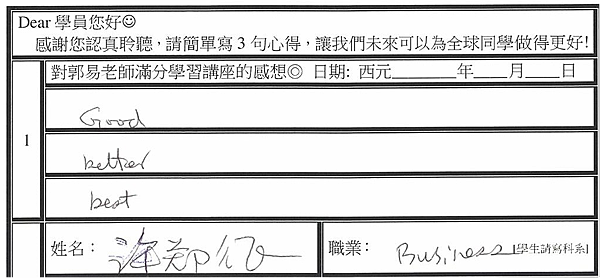 Dear 學員您好☺
感謝您認真聆聽，請簡單寫 3 句心得，讓我們未來可以為全球同學做得更好!
對郭易老師滿分學習講座的感想◎ 日期: 西元_______年____月____日
1
Good
better
best
姓名：
職業： Business [學生請寫科系]